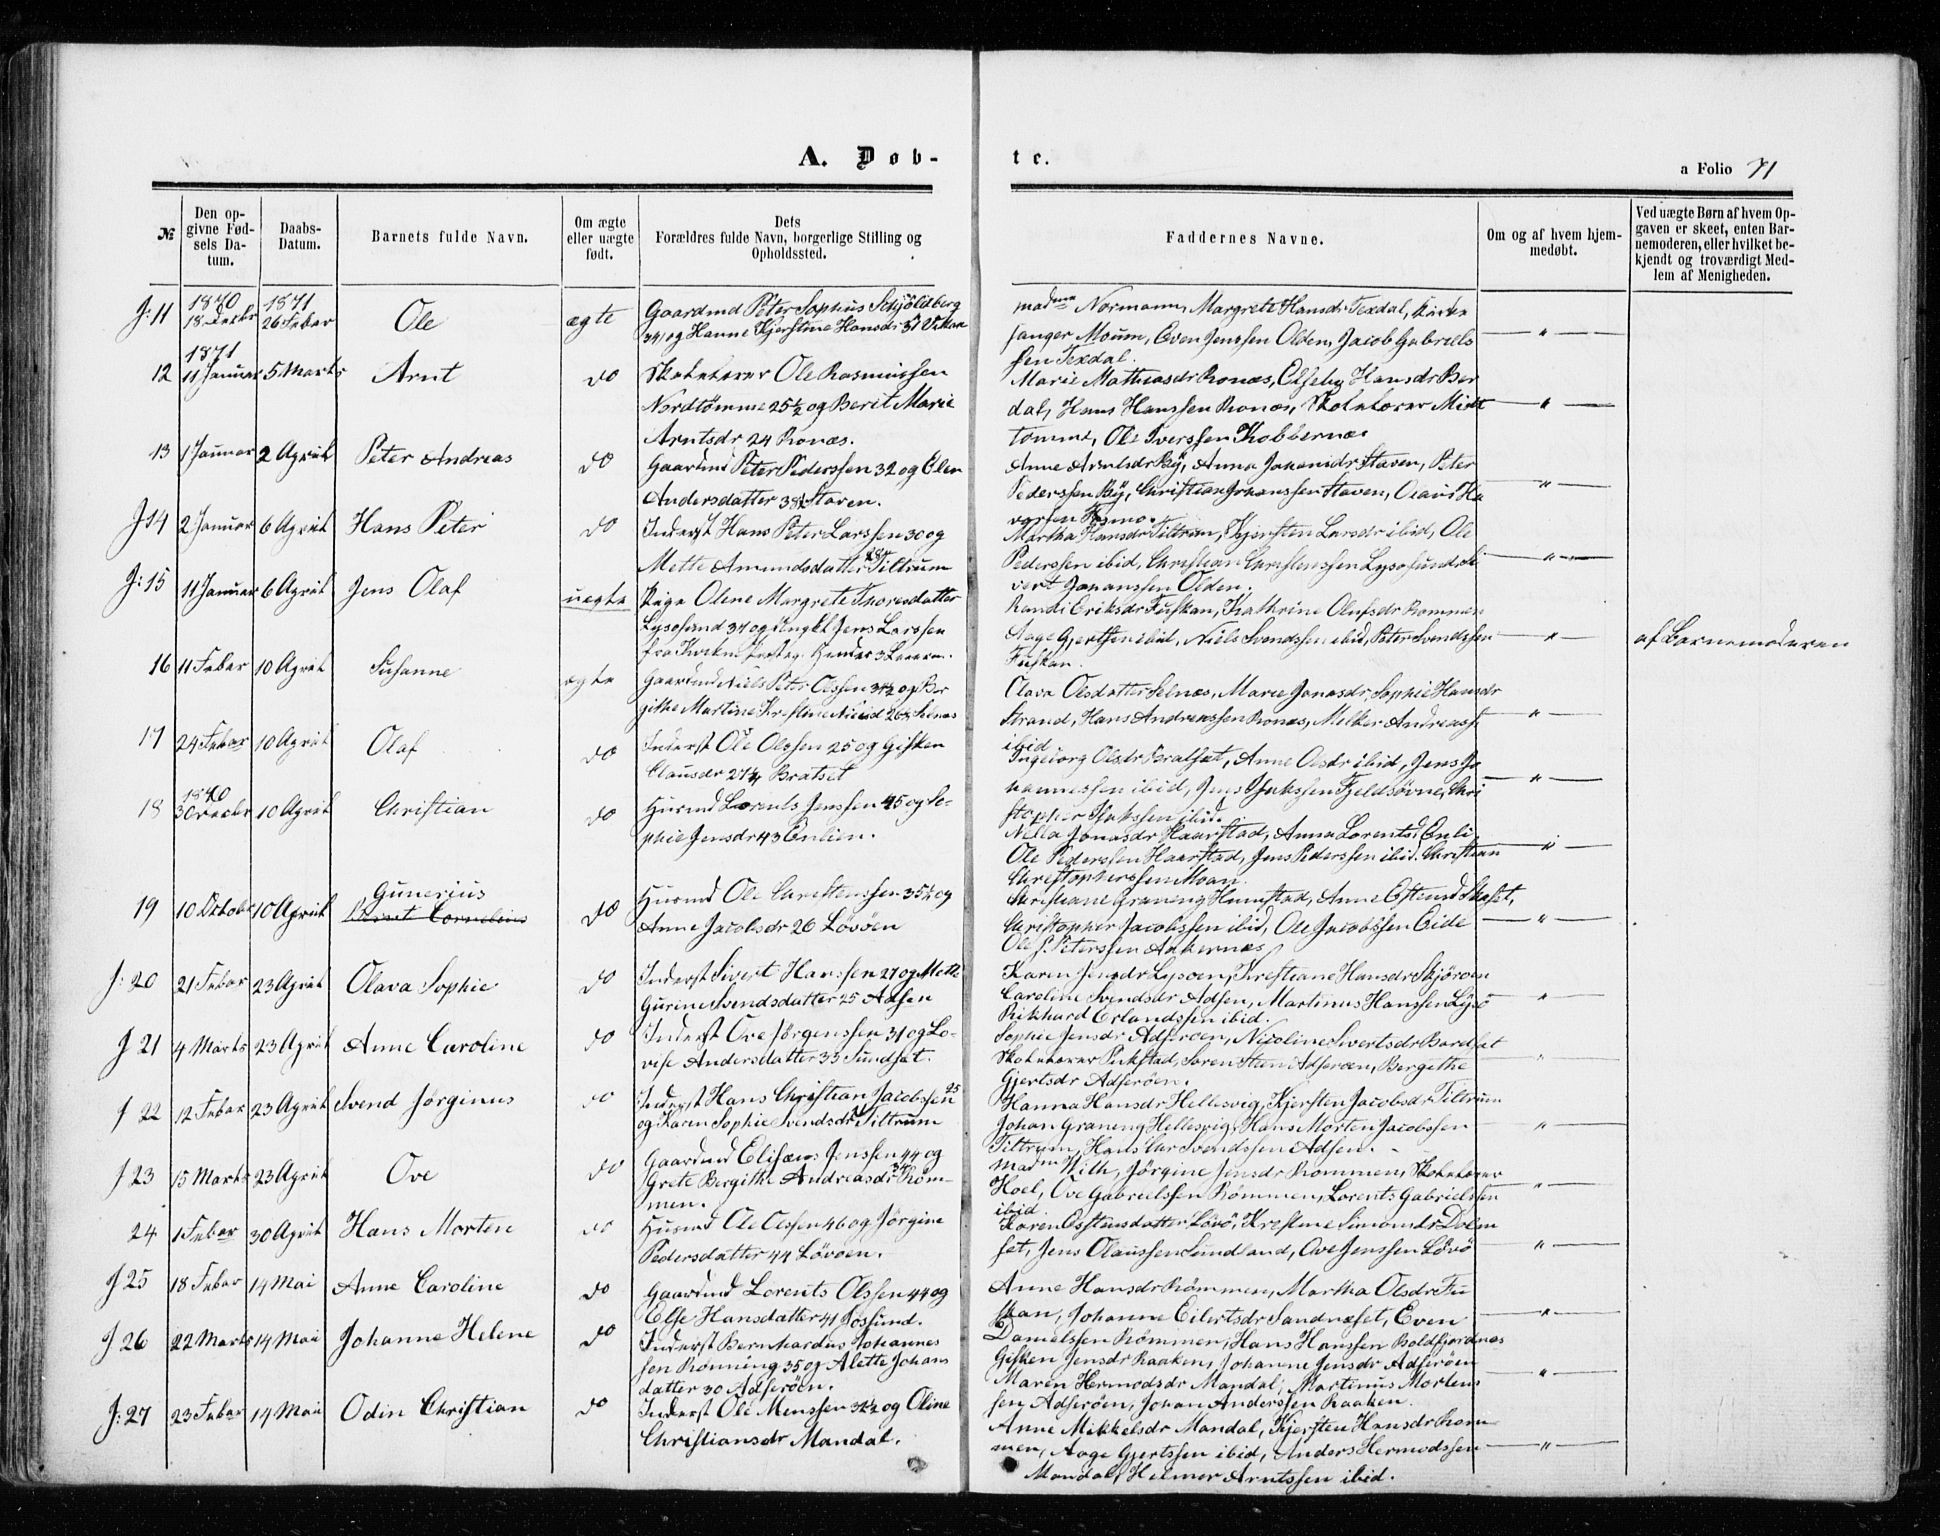 A. Døb-
te.
a Folio 71
№
Den opgivne Fødsels Datum.
Daabs-Datum.
Barnets fulde Navn.
Om ægte eller uægte født.
Dets Forældres fulde Navn, borgerlige Stilling og Opholdssted.
Faddernes Navne.
Om og af hvem hjemmedøbt.
Ved uægte Børn af hvem Opgaven er skeet, enten Barnemoderen, eller hvilket bekjendt og troværdigt Medlem af Menigheden.
J: 11 1870 18 Decbr 1871 26 Febar Ole ægte
Gaardmd Peter Sophus Schjöldberg
34 og Hanne Kjerstine Hansdr 37
madme Normann, Margrete Hansdr Texdal, Kirke
sanger Moum, Even Jenssen Olden, Jacob Gabriels
sen Texdal.
12 1871 11 Januar 5 Marts Arnt do
Skolelærer Ole Rasmussen
Nordtømme 25½ og Berit Marie
Arntsdr 24 Ronæs.
Marie Mathiasdr Ronæs, Elseby Hansdr Ber
dal, Hans Hanssen Ronæs, Skolelærer Midt
tømme, Ole Iverssen Kobbernæs
13 1 Januar 2 April Peter Andreas do
Gaardmd Peter Pederssen 32 og Elen
Andersdatter Staven.
Anne Arntsdr By, Anna Johansdr Staven, Peter
Pederssen By, Christian Johanssen Staven, Olaus Ha
J 14 2 Januar 6 April Hans Peter do
Inderst Hans Peter Larssen 30 og
Mette Amundsdatter Tiltrum
Martha Hansdr Tiltrum, Kjersten Larsdr ibid, Ole
Pederssen ibid, Christian Christenssen Lysøsund, Si
vert Johanssen Olden.
J: 15 11 Januar 6 April Jens Olaf uægte
Pige Olene Margrete Thoresdatter
Lysøsund 37 og Ungkl Jens Larssen
Randi Eriksdr Fuskan, Kathrine Olufsdr Rømmen
Aage Gjertsen ibid, Niels Svendssen ibid, Peter Svendssen
Fuskan.
af Barnemoderen
16 11 Febar 10 April Susanne ægte
Gaardmd Niels Peter Olssen 34½ og Ber
githe Martine Kristine Selnæs
Olava Olsdatter Selnæs, Marie Jonasdr, Sophie Hansdr
Strand, Hans Andreassen Ronæs, Melker Andreass
ibid
17 24 Febar 10 April Olaf do
Inderst Ole Olssen 25 og Gisken
Clausdr 27¼ Bratset
Ingeborg Olsdr Bratset, Anne Olsdr ibid, Jens Jo
hannessen ibid, Jens Fjeldsøvne, Chri
stopher ibid.
18 1870 30 Decbr 10 April Christian do
Husmd Lorents Jenssen 45 og So-
phie Jensdr 43 Enlien.
Nella Jonasdr Haarstad, Anna Lorentsd Enli
Ole Pederssen Haarstad, Jens Pederssen ibid. Christian
Christopherssen Moan.
19 10 Octobr 10 April Gunerius Cornelius do
Husmd Ole Christenssen 35½ og
Anne Jacobsdr 26 Løvøen
Christiane Graneng Humstad, Anne
Christopher Jacobssen ibid, Ole Jacobssen Eide
Ole P. Peterssen Ankernæs
J: 20 21 Febar 23 April Olava Sophie do
Inderst Sivert Hanssen 27 og Mette
Gurine Svendsdatter 25 Adsen
Karen Jensdr Lysøen, Kristiane Hansdr Skjøroen
Caroline Svendsdr Adsen, Martinus Hanssen Lysø
Rikhard Erlandssen ibid.
J 21 4 Marts 23 April Anne Caroline do
Inderst Ove Jørgenssen 31 og Lo-
vise Andersdatter 33 Sundset.
Sophie Jensdr Adserøen, Nicoline Sivertsdr Bardset
Skolelærer Pukstad, Søren Steen Adserøen, Bergithe
Gjertsdr Adserøen.
J 22 12 Febar 23 April Svend Jørginus do
Inderst Hans Christian Jacobssen 25
og Karen Sophie Svendsdr Tiltrum
Hanna Hansdr Hellesvig, Kjersten Jacobsdr Tiltrum
Johan Graneng Hellesvig, Hans Morten Jacobssen
Tiltrum, Hans Chr Svendssen Adsen.
J 23 15 Marts 23 April Ove do
Gaardmd Elisæus Jenssen 44 og
Grete Bergithe Andreasdr Røm-
men.
Madm Wilh, Jørgine Jensdr Rømmen, Skolelærer
Hoel, Ove Gabrielssen Rømmen, Lorents Gabrielssen
ibid
24 1 Febar 30 April Hans Morten do
Husmd Ole Olssen 46 og Jørgine
Pedersdatter 44 Løvøen.
Karen Østensdatter Løvø, Kristine Simonsdr Dolm
set, Jens Olaussen Sundland, Ove Jenssen Løvø
J 25 18 Febar 14 Mai Anne Caroline do
Gaardmd Lorents Olssen 44 og
Else Hansdatter 41 Jøssund.
Anne Hansdr Rømmen, Martha Olsdr Fu
skan, Johanne Eilertsdr Sandnæset, Even
Danielssen Rømmen, Hans Hanssen Boldfjordnæs
J 26 22 Marts 14 Mai Johanne Helene do
Inderst Bernhardus Johannes
sen Rønning 35 og Alette Johans
datter 30 Adserøen.
Gisken Jensdr Raaken, Johanne Jensdr Adserøen
Maren Hermodsdr Mandal, Martinus Mortens
sen Adserøen, Johan Anderssen Raaken.
J: 27 23 Febar 14 Mai Odin Christian do
Inderst Ole Menssen 34½ og Oline
Christiansdr Mandal.
Anne Mikkelsdr Mandal, Kjersten Hansdr Røm-
men, Aage Gjertssen ibid, Anders Hermodssen
Mandal, Helmer Arntssen ibid.